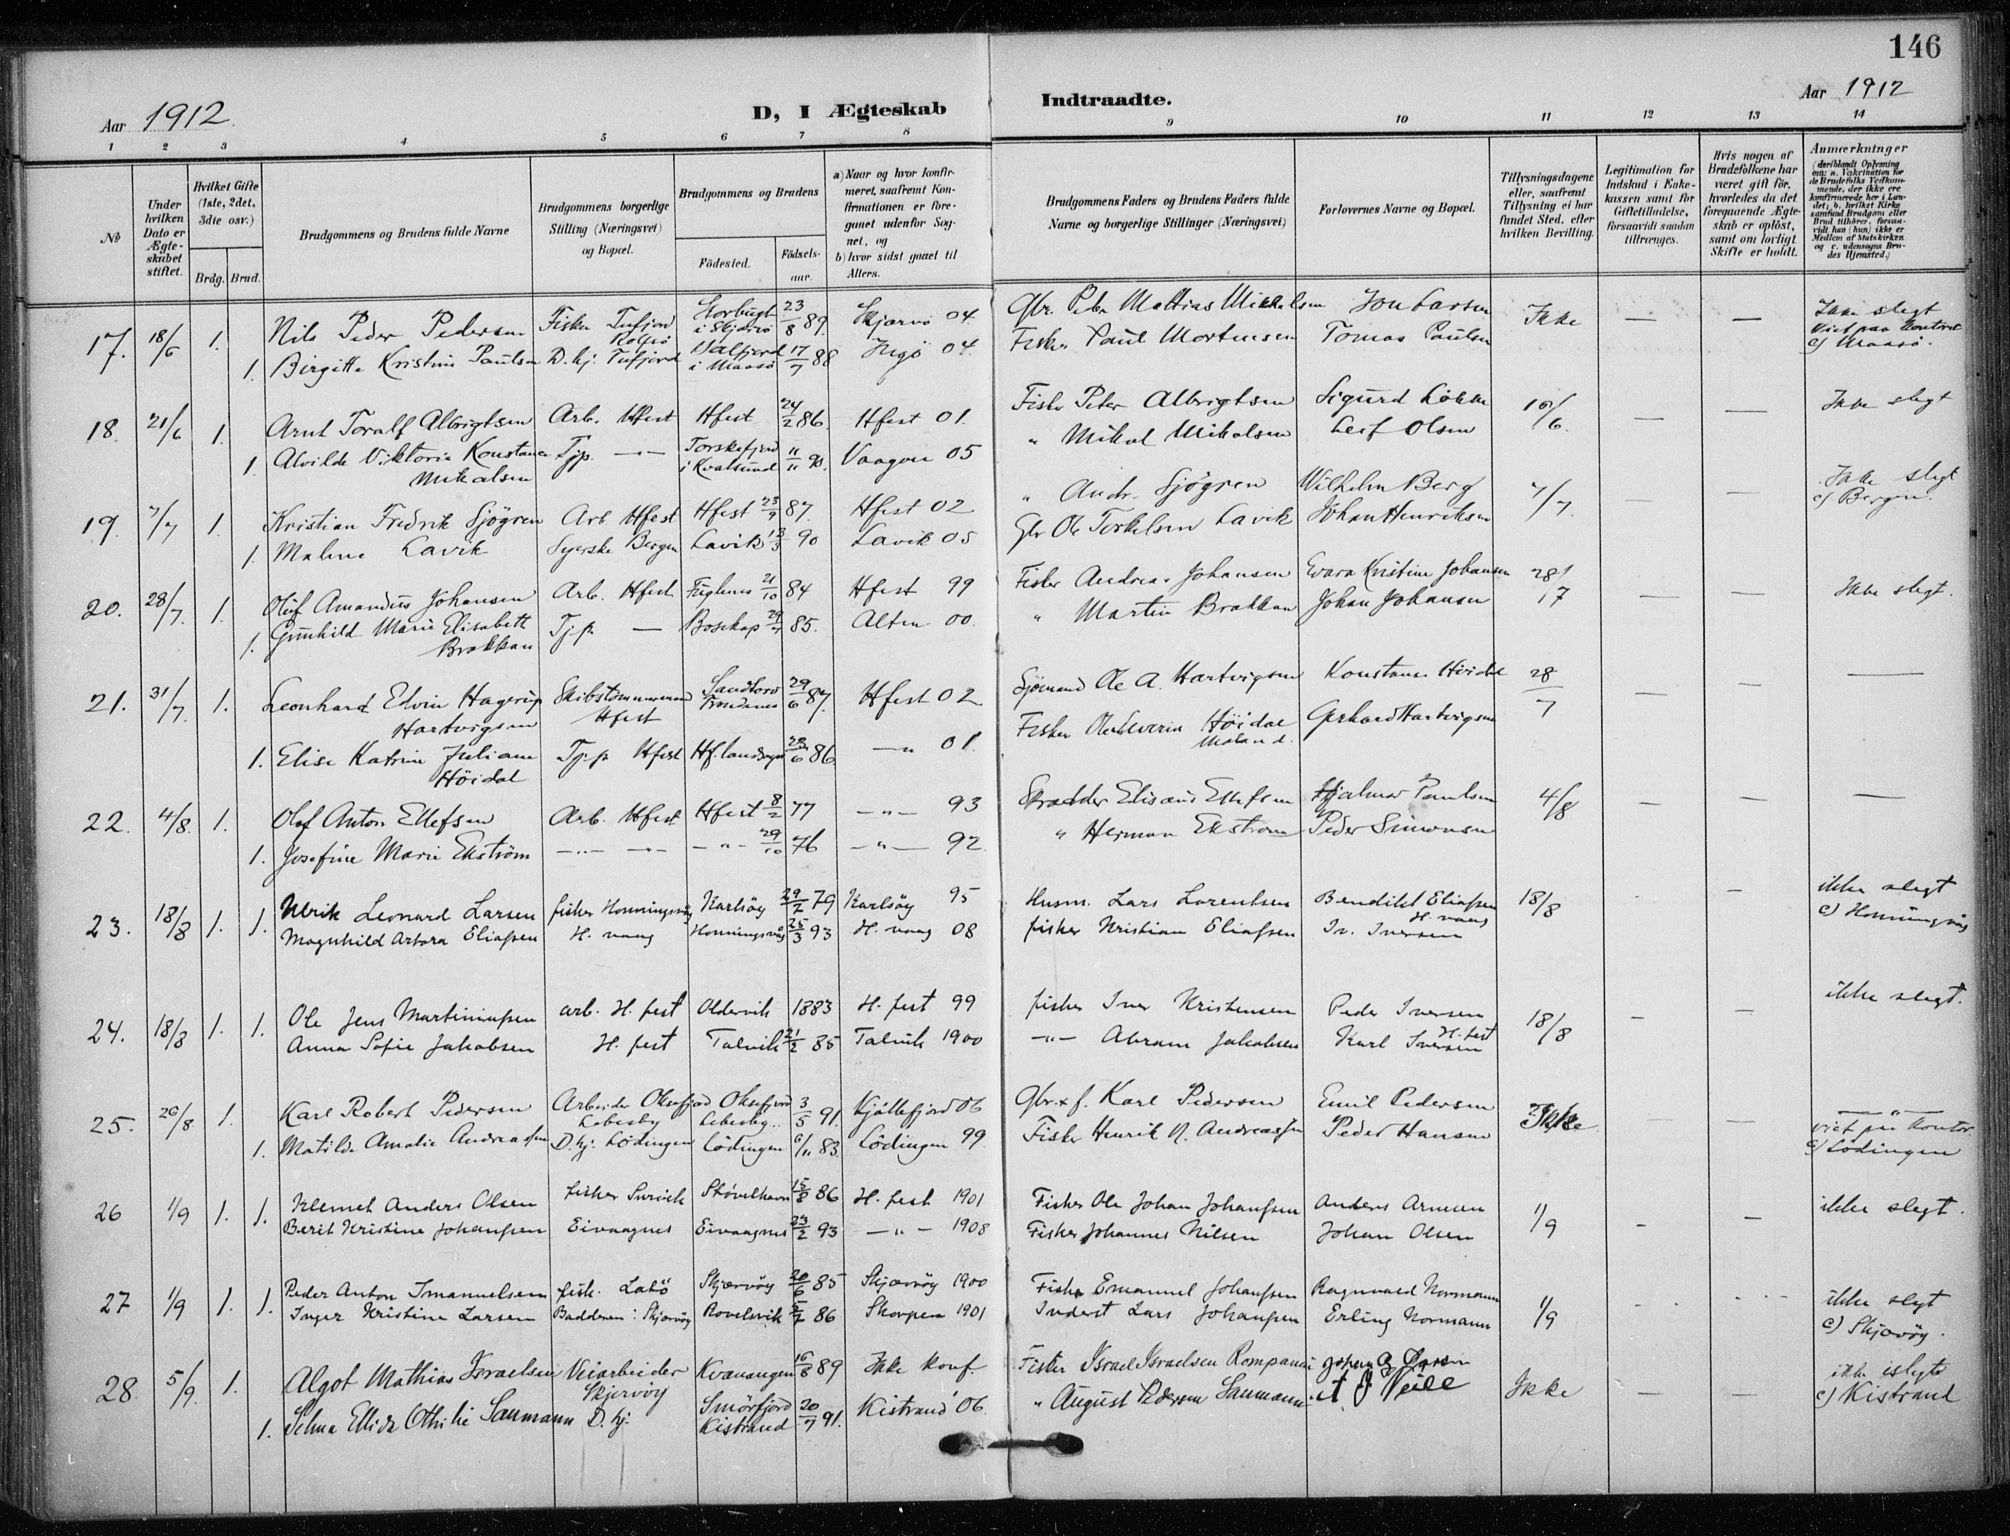 146
Aar 1912.
D, I Ægteskab
Indtraadte.
Aar 1912
1 2 3 4 5 6 7 8 9 10 11 12 13 14
No
Under hvilken Dato er Ægte-skabet stiftet.
Hvilket Gifte (1ste, 2det, 3die osv.)
Brdg. Brud.
Brudgommens og Brudens fulde Navne
Brudgommens borgerlige Stilling (Næringsvei) og Bopæl.
Brudgommens og Brudens
Fødested.
Fødsels-aar.
a) Naar og hvor konfir-meret, saafremt Kon-firmationen er fore-gaaet udenfor Sog-net, og
b) hvor sidst gaaet til Alters.
Brudgommens Faders og Brudens Faders fulde Navne og borgerlige Stillinger (Næringsvei)
Forlovernes Navne og Bopæl.
Tillysningsdagene eller, saafremt Tillysning ei har fundet Sted, efter hvilken Bevilling.
Legitimation for Indskud i Enke-kassen samt for Giftetilladelse, forsaavidt saadan tiltrænges.
Hvis nogen af Brudefolkene har været gift før, hvorledes da det foregaaende Ægte-skab er opløst, samt om lovligt Skifte er holdt.
Anmærkninger
17. 18/6 1. Nils Peder Pedersen Fisker Tufjord Rolfsø i Skjærvø 23/8 89. Skjærvø 04. Gbr. Peter Mathias Mikkelsen Jon Larsen Ikke — — Ikke slegt
viet paa Kontoret
1. Birgitte Kristine Paulsen D. hj. Tufjord i Maasø 17/7 88 Ingø 04. Fisker Paul Mortensen Tomas Paulsen c) Maasø.
18. 21/6 1. Arnt Toralf Albrigtsen Arb. Hfest Hfest 24/2 86. Hfest 01. Fisker Peter Albrigtsen Sigurd Løkke 16/6 — — Ikke slegt
1. Alvilde Viktoria Konstanse Mikalsen Tjp. —"— Torskefjord i Kvalsund 11/11 90. Vaagen 05 " Mikal Mikalsen Leif Olsen
19. 7/7 1. Kristian Fredrik Sjøgren Arb Hfest Hfest 23/9 87. Hfest 02 " Andr. Sjøgren Wilhelm Berg 7/7. — — Ikke slegt
c) Bergen.
1. Malene Lavik Syerske Bergen Lavik 90 Lavik 05 Gbr Ole Torkelsen Lavik Johan Henriksen
20. 28/7. 1. Oluf Amandus Johansen Arb. Hfest Fuglenes 21/10 84 Hfest 99 Fisker Andreas Johansen Evara Kristine Johansen 28/7 — — Ikke slegt.
1. Gunhild Marie Elisabett Brakkan Tj.p. — Bosekop 85. Alten 00. " Martin Brakkan Johan Johansen
21. 31/7. 1. Leonhard Edvin Hagerup Hartvigsen Skibstømmermand Hfest Sandtorv Trondenes 29/6 87. Hfest 02 Sjømand Ole A. Hartvigsen Konstanse Høidal 28/7 — — —
1. Elise Katrine Juliane Høidal Tj.p. Hfest Hf.landsogn 86 —"— 01. Fisker Ole Severin Høidal Gerhard Hartvigsen
22. 4/8. 1. Olaf Anton Ellefsen Arb. Hfest Hfest 8/2 77 —"— 93 Skrædder Elisæus Ellefsen Hjalmar Paulsen 4/8 — — —
1. Josefine Marie Ekstrøm —"— —"— —"— 29/10 76 —"— 92. " Herman Ekstrøm Peder Simonsen
23. 18/8 1. 1. Ulrik Leonard Larsen fisker Honningsvåg Karlsøy 29/7 79 Karlsøy 95 Husm. Lars Lorentsen Bendikt Eliassen H. vaag 18/8 - - ikke slegt
c) Honningsvåg
Magnhild Artora Eliassen H. vaag Honningsvåg 25/3 93 H. vaag 08 fisker Kristian Eliassen Iv. Iversen
24. 18/8 1. 1. Ole Jens Martiniussen arb. H. fest Oldervik 1883 H. fest 99 fisker Iver Kristensen Peder Iversen 18/8 - - ikke slegt.
Anna Sofie Jakobsen H. fest Talvik 21/2 85 Talvik 1900 —"— Abram Jakobsen Karl Iversen H. fest
25. 26/8 1. Karl Robert Pedersen Arbeider Oksefjord Lebesby Oksefjord Lebesby. 3/5 91. Kjøllefjord 06 Gbr. & f. Karl Pedersen Emil Pedersen Ikke — — —"—
viet på kontor.
c) Lødingen
1. Matilde Amalie Andreassen D. hj. Lødingen Lødingen 6/11 83. Lødingen 99. Fisker Henrik N. Andreassen Peder Hansen
26 1/9 1. 1. Klemet Anders Olsen fisker Survik Støvelhavn 15/8 86 H. fest 1901 Fisker Ole Johan Johanssen Anders Arnesen 1/9 - - ikke slegt.
Berit Kristine Johanssen Eivaagnes Eivaagnes 23/2 93 —"— 1908 Fisker Johannes Nilsen Johan Olsen
27 1/9 1. 1. Peder Anton Imanuelsen fisk. Latø Skjærvøy 20/6 85 Skjærvøy 1900 Fisker Emanuel Johanssen Ragnvald Normann 1/9 - - ikke slegt
c) Skjærvøy.
Inger Kristine Larsen Badderen i Skjærvøy Rovelsvik 86 Skorpen 1901 Inderst Lars Johanssen Erling Normann
28. 5/9. 1. Algot Mathias Israelsen Veiarbeider Skjervøy Kvænangen 16/8 89 Ikke konf. Fisker Israel Israelsen Rompanen Ikke — — ikke slegt
c) Kistrand
1. Selma Ellida Othilie Saumann D. hj. Smørfjord Kistrand 20/7 91. Kistrand '06. " August Pedersen Saumann